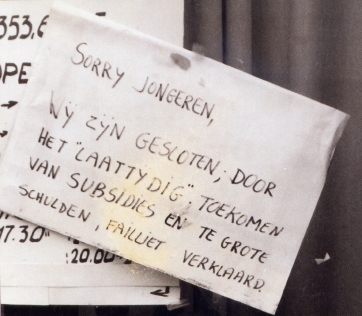 353,6
OPE
SORRY JONGEREN,
WY ZYN GESLOTEN; DOOR
HET "LAATTYDIG" TOEKOMEN
VAN SUBSIDIES EN TE GROTE
SCHULDEN, FAILLIET VERKLAARD.
17.30"
:20.00